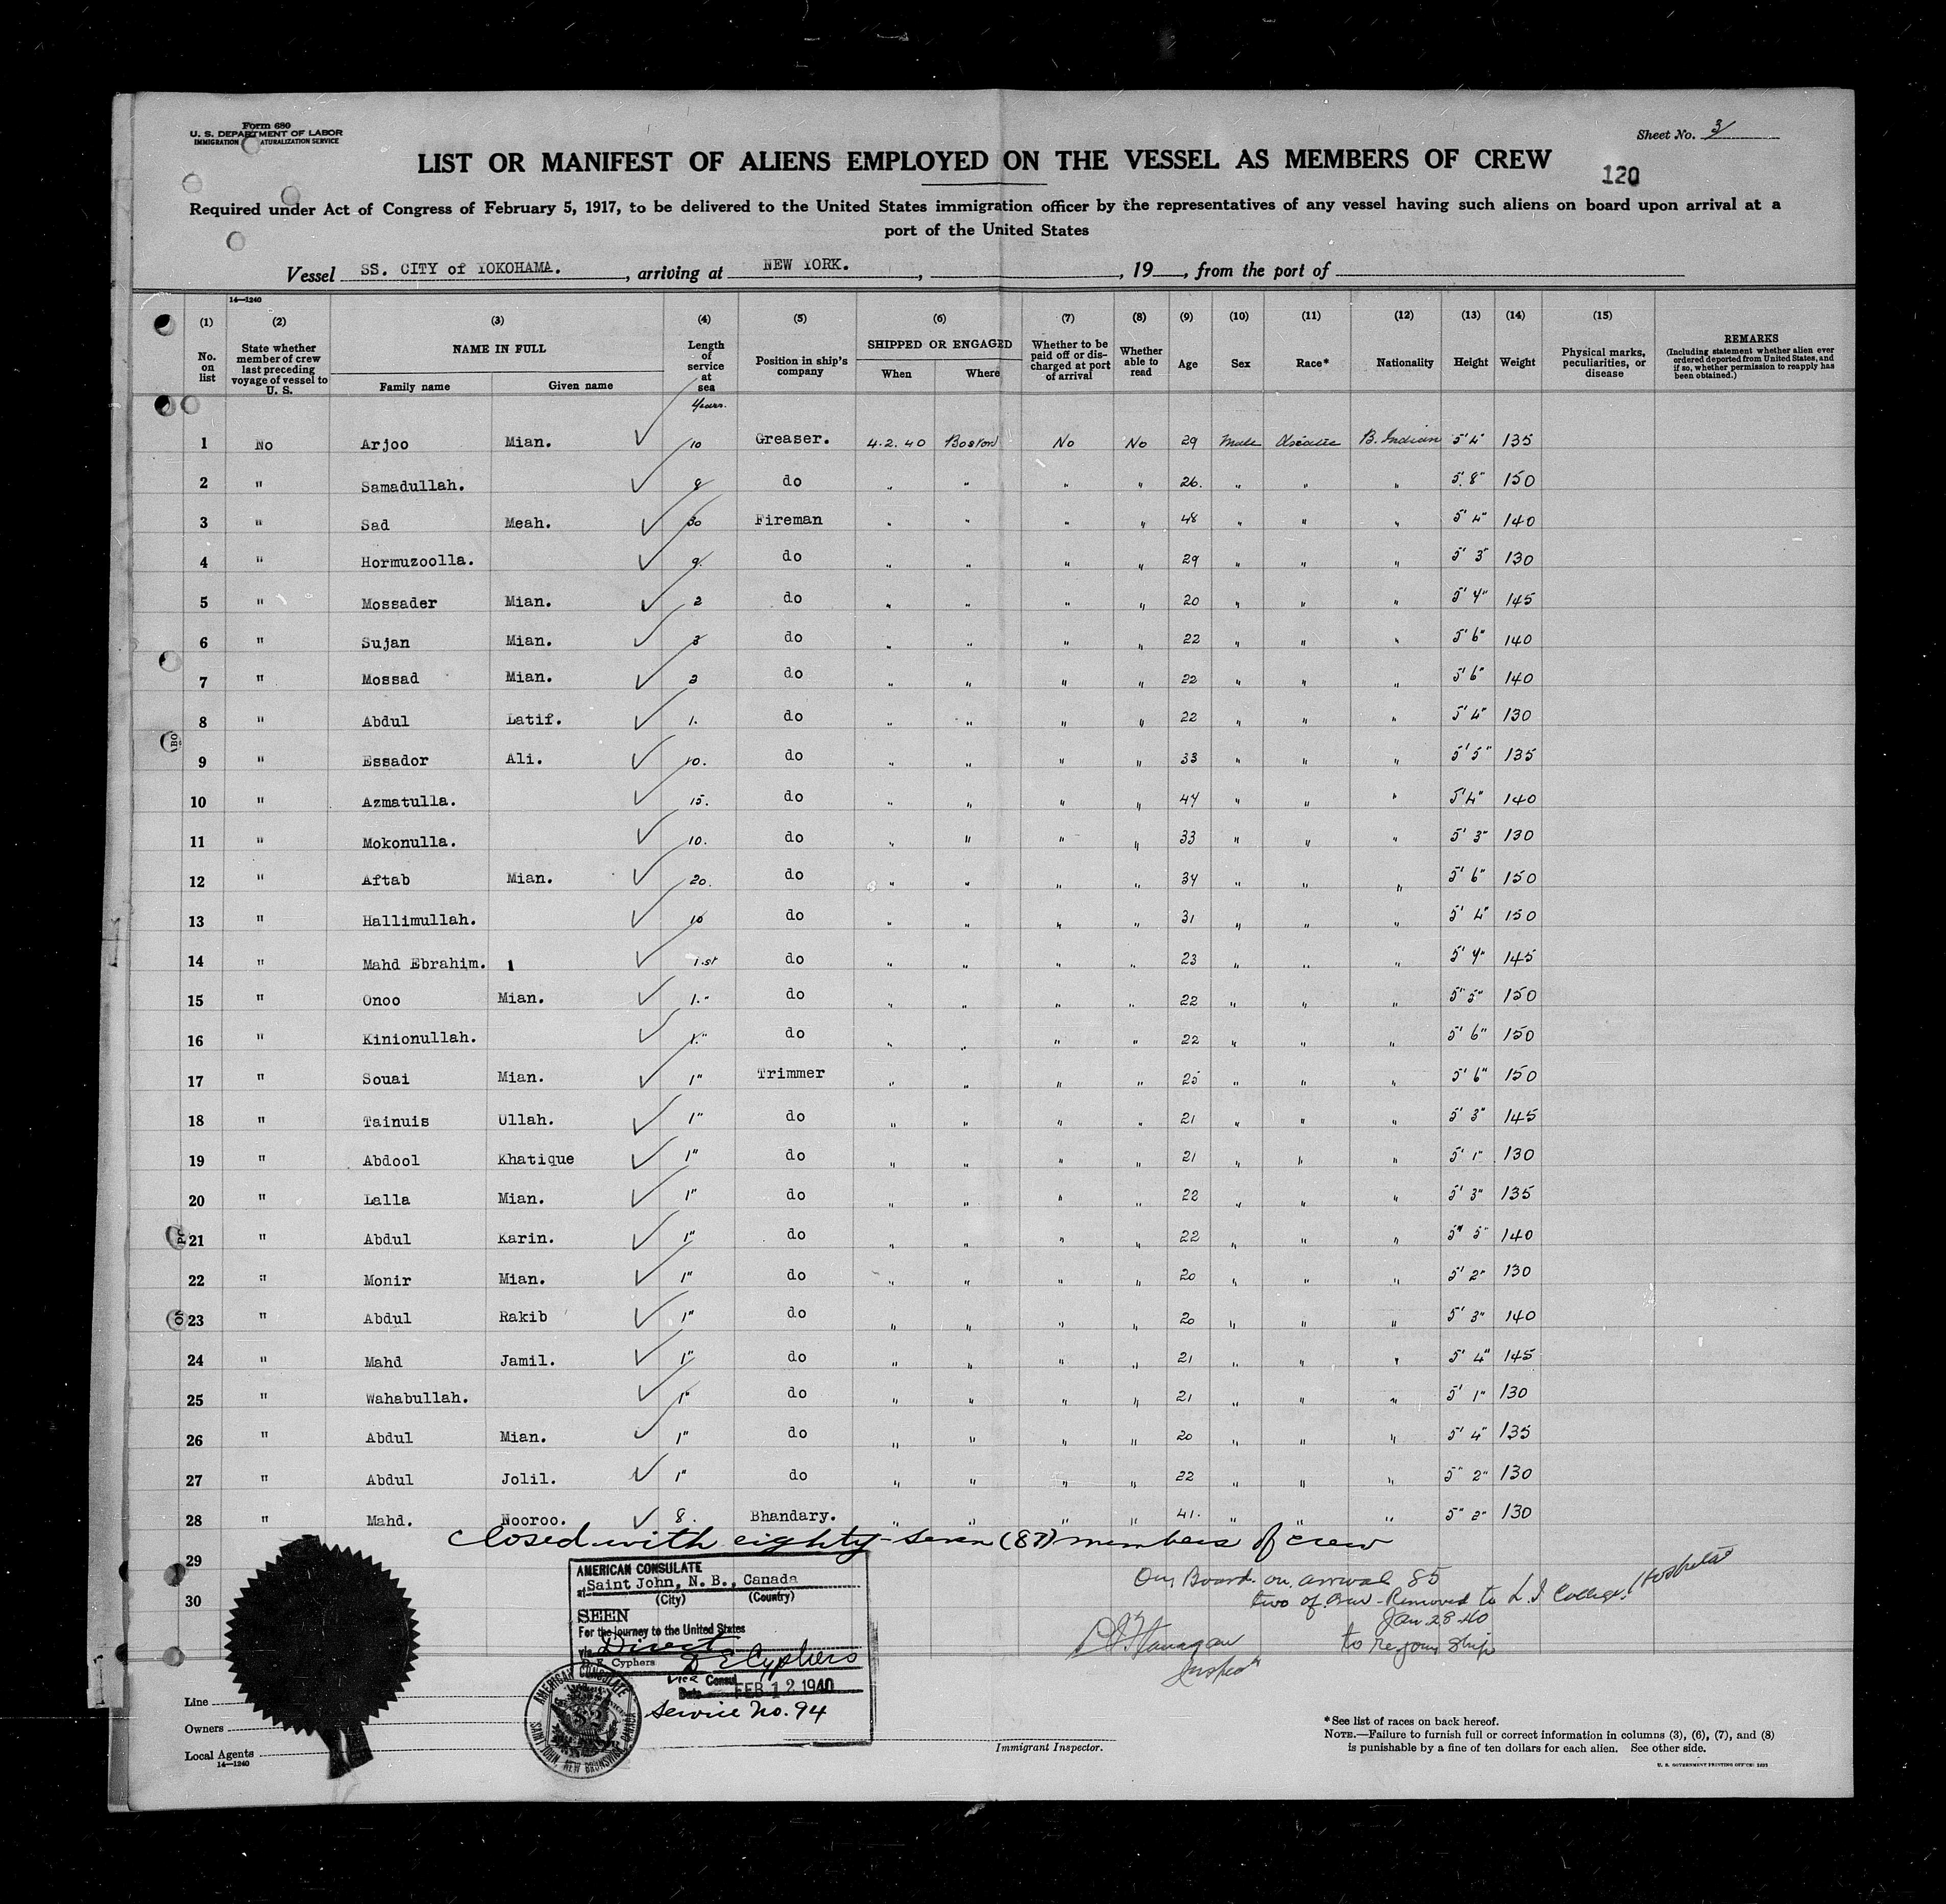 Form 680
U. S. DEPARTMENT OF LABOR
IMMIGRATION ATURALIZATION SERVICE
Sheet No. 3
LIST OR MANIFEST OF ALIENS EMPLOYED ON THE VESSEL AS MEMBERS OF CREW
120
Required under Act of Congress of February 5, 1917, to be delivered to the United States immigration officer by the representatives of any vessel having such aliens on board upon arrival at a
port of the United States
Vessel SS. CITY of YOKOHAMA. , arriving at NEW YORK. , , 19 , from the port of
14—1240
(1) (2) (3) (4) (5) (6) (7) (8) (9) (10) (11) (12) (13) (14) (15)
No. on list State whether member of crew last preceding voyage of vessel to U. S. NAME IN FULL Family name Given name Length of service at sea Position in ship's company SHIPPED OR ENGAGED When Where Whether to be paid off or discharged at port of arrival Whether able to read Age Sex Race* Nationality Height Weight Physical marks, peculiarities, or disease REMARKS (Including statement whether alien ever ordered deported from United States, and if so, whether permission to reapply has been obtained.)
Years.
1 No Arjoo Mian. 10 Greaser. 4.2.40 Boston No No 29 Male Asiatic B. Indian 5' 4" 135
2 " Samadullah. 8 do " " " " 26. " " " 5' 8" 150
3 " Sad Meah. 30 Fireman " " " " 48 " " " 5' 4" 140
4 " Hormuzoolla. 9. do " " " " 29 " " " 5' 3" 130
5 " Mossader Mian. 2 do " " " " 20 " " " 5' 4" 145
6 " Sujan Mian. 3 do " " " " 22 " " " 5' 6" 140
7 " Mossad Mian. 2 do " " " " 22 " " " 5' 6" 140
8 " Abdul Latif. 1. do " " " " 22 " " " 5' 4" 130
9 " Essador Ali. 10. do " " " " 33 " " " 5' 5" 135
10 " Azmatulla. 15. do " " " " 44 " " " 5' 4" 140
11 " Mokonulla. 10. do " " " " 33 " " " 5' 3" 130
12 " Aftab Mian. 20. do " " " " 34 " " " 5' 6" 150
13 " Hallimullah. 10 do " " " " 31 " " " 5' 4" 150
14 " Mahd Ebrahim. 1.st do " " " " 23 " " " 5' 4" 145
15 " Onoo Mian. 1." do " " " " 22 " " " 5' 5" 150
16 " Kinionullah. 1." do " " " " 22 " " " 5' 6" 150
17 " Souai Mian. 1" Trimmer " " " " 25 " " " 5' 6" 150
18 " Tainuis Ullah. 1" do " " " " 21 " " " 5' 3" 145
19 " Abdool Khatique 1" do " " " " 21 " " " 5' 1" 130
20 " Lalla Mian. 1" do " " " " 22 " " " 5' 3" 135
21 " Abdul Karin. 1" do " " " " 22 " " " 5' 5" 140
22 " Monir Mian. 1" do " " " " 20 " " " 5' 2" 130
23 " Abdul Rakib 1" do " " " " 20 " " " 5' 3" 140
24 " Mahd Jamil. 1" do " " " " 21 " " " 5' 4" 145
25 " Wahabullah. 1" do " " " " 21 " " " 5' 1" 130
26 " Abdul Mian. 1" do " " " " 20 " " " 5' 4" 135
27 " Abdul Jolil. 1" do " " " " 22 " " " 5' 2" 130
28 " Mahd. Nooroo. 8. Bhandary. " " " " 41. " " " 5' 2" 130
Closed with eighty-seven (87) members of crew
29
30
AMERICAN CONSULATE
at Saint John, N. B., Canada
(City) (Country)
SEEN
For the journey to the United States
via Direct
D. E. Cyphers D E Cyphers
Vice Consul
Date FEB 12 1940
Service No. 94
AMERICAN CONSULATE
SAINT JOHN, NEW BRUNSWICK, CANADA
On Board on arrival 85
two of Crew - Removed to L. I College Hospital
Jan 28-40
to rejoin ship
Line
Owners
Local Agents
14—1240
Immigrant Inspector.
*See list of races on back hereof.
NOTE.—Failure to furnish full or correct information in columns (3), (6), (7), and (8)
is punishable by a fine of ten dollars for each alien. See other side.